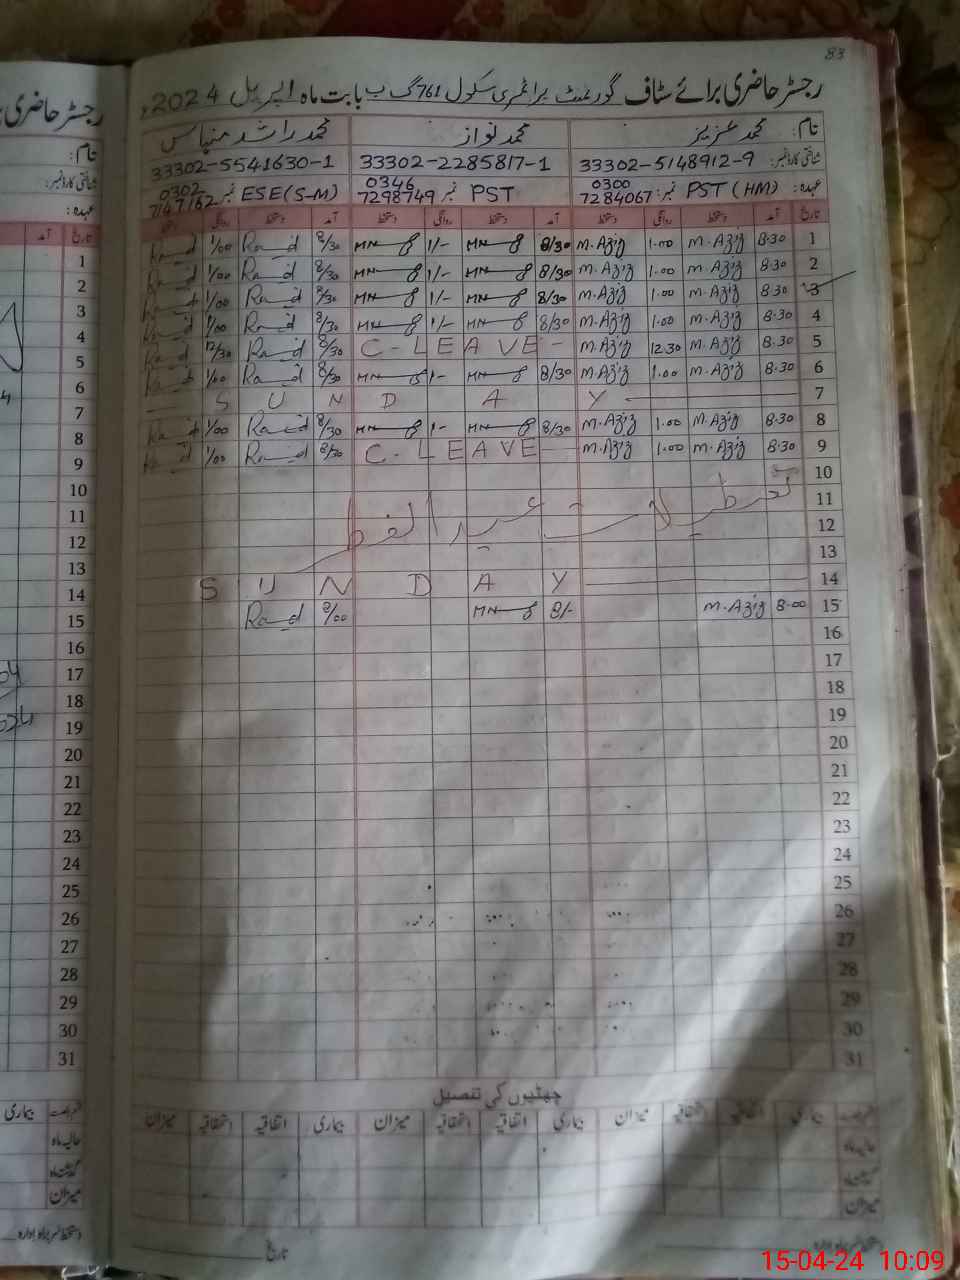 83
رجسٹر حاضری برائے سٹاف گورنمنٹ پرائمری سکول 761 گ ب بابت ماہ اپریل 2024ء
نام: محمد عزیز محمد نواز محمد راشد منہاس
شناختی کارڈ نمبر: 33302-5148912-9 33302-2285817-1 33302-5541630-1
عہدہ: PST (HM) نمبر 0300 7284067 PST نمبر 0346 7298749 ESE(S-M) نمبر 0302 7147162
تاریخ آمد دستخط روانگی دستخط آمد دستخط روانگی دستخط آمد دستخط روانگی دستخط
1 8.30 M.Aziz 1.00 M.Aziz 8/30 MN 1/- MN 8/30 Rashid 1/00 Rashid
2 8.30 M.Aziz 1.00 M.Aziz 8/30 MN 1/- MN 8/30 Rashid 1/00 Rashid
3 8.30 M.Aziz 1.00 M.Aziz 8/30 MN 1/- MN 8/30 Rashid 1/00 Rashid
4 8.30 M.Aziz 1.00 M.Aziz 8/30 MN 1/- MN 8/30 Rashid 1/00 Rashid
5 8.30 M.Aziz 12.30 M.Aziz C-LEAVE- 8/30 Rashid 12/30 Rashid
6 8.30 M.Aziz 1.00 M.Aziz 8/30 MN 1/- MN 8/30 Rashid 1/00 Rashid
7 SUNDAY
8 8.30 M.Aziz 1.00 M.Aziz 8/30 MN 1/- MN 8/30 Rashid 1/00 Rashid
9 8.30 M.Aziz 1.00 M.Aziz C-LEAVE 8/30 Rashid 1/00 Rashid
10
11 تعطیلات عید الفطر
12
13
14 SUNDAY
15 8.00 M.Aziz 8/- MN 8/00 Rashid
16
17
18
19
20
21
22
23
24
25
26
27
28
29
30
31
چھٹیوں کی تفصیل
بیماری اتفاقیہ استحقاقیہ میزان بیماری اتفاقیہ استحقاقیہ میزان بیماری اتفاقیہ استحقاقیہ میزان
حالیہ ماہ
گذشتہ ماہ
میزان
دستخط سربراہ ادارہ تاریخ
رجسٹر حاضری
نام:
شناختی کارڈ نمبر:
عہدہ:
تاریخ آمد
1
2
3
4
5
6
7
8
9
10
11
12
13
14
15
16
17
18
19
20
21
22
23
24
25
26
27
28
29
30
31
بیماری
حالیہ ماہ
گذشتہ ماہ
میزان
دستخط سربراہ ادارہ
15-04-24 10:09